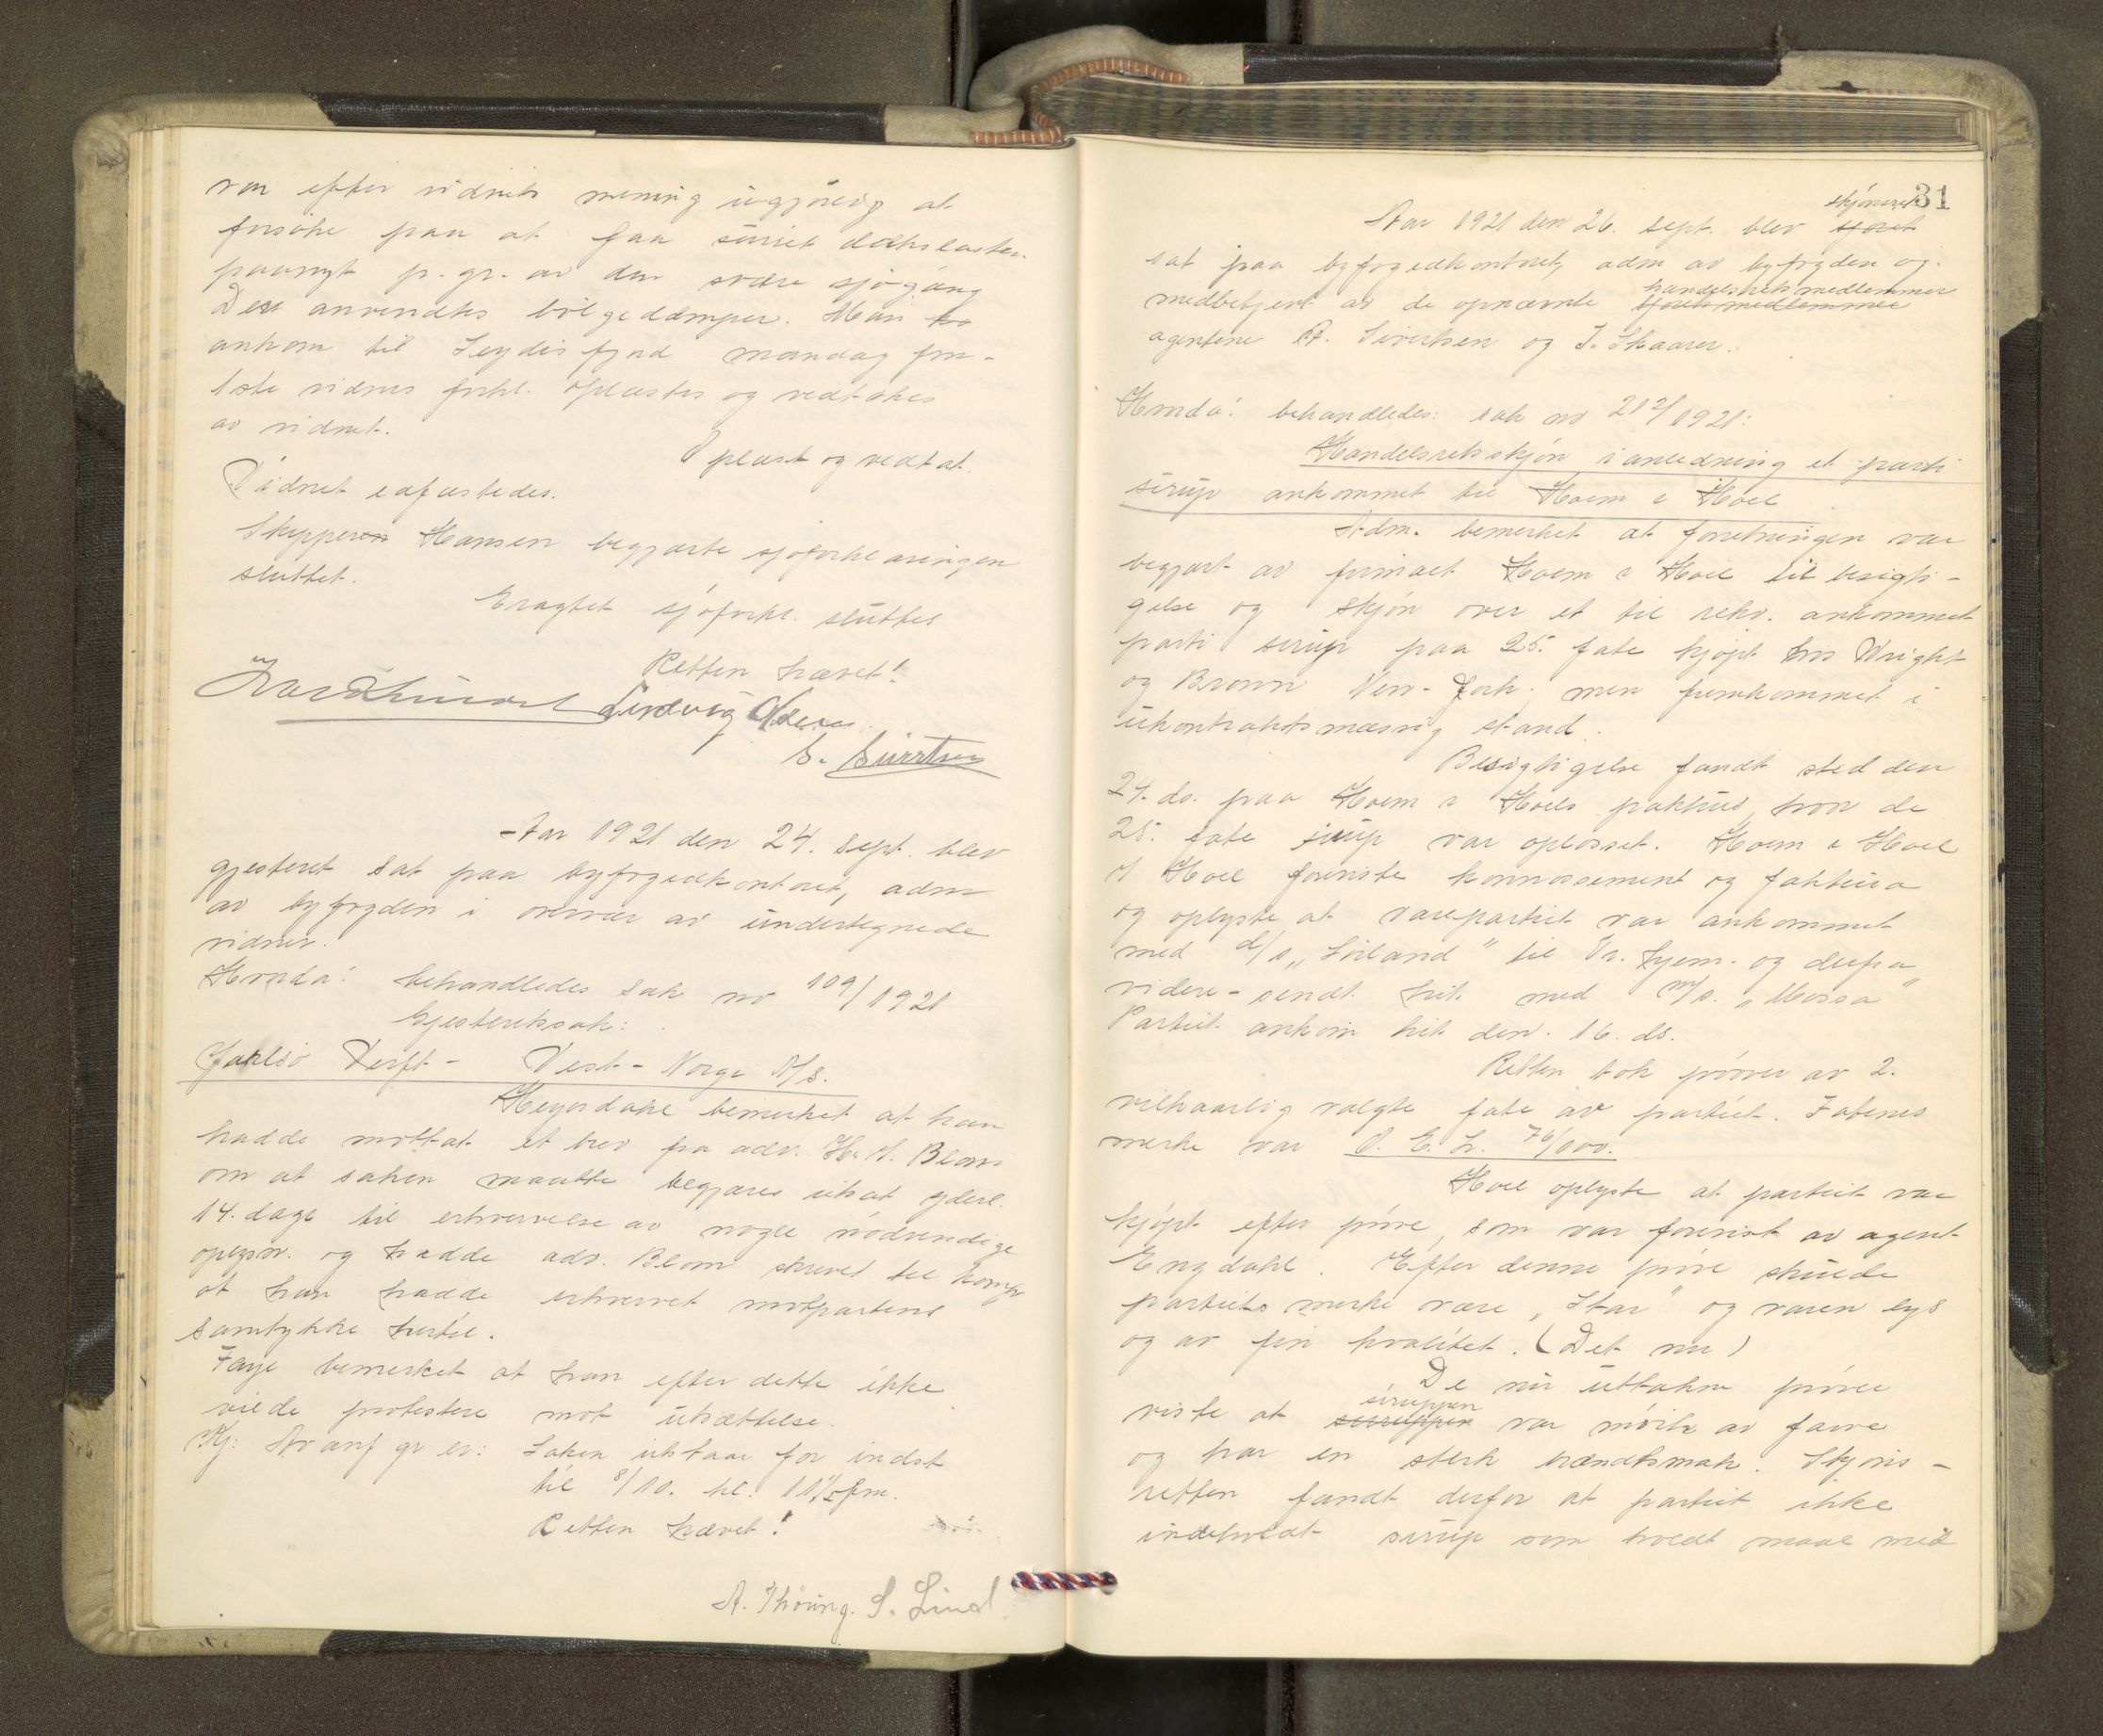 var efter vidnets mening ugjørlig at
forsøke paa at faa surret dækslasten
paanyt p. gr. av den svære sjøgang
Der anvendtes bølgedæmper. Man
ankom til Seydisfjord mandag
1ste vidnes forkl. oplæstes og vedtokes
av vidnet.
Oplæst og vedtat.
Vidnet edfæstedes.
Skipperen Hansen begjærte sjøforklaringen
sluttet.
Eragtet sjøforkl. sluttes
Retten hævet!
Ludvig Olsen
S. Sivertsen
Aar 1921 den 24. sept. blev
gjesteret sat paa byfogedkontoret, adm
av byfogden i overvær av undertegnede
vidner.
Hvorda: behandledes sak nr 109/1921
Gjesteretssak:
Jarlsø Verft - Vest-Norge A/S.
Heyerdahl bemerket at han
hadde mottat et brev fra adv. H. A. Blom
om at saken maatte begjæres utsat yderl.
14. dage til erhvervelse av nogle nødvendige
oplysn. og hadde adv. Blom skrevet til komp
at han hadde erhvervet motpartens
samtykke hertil.
Faye bemerket at han efter dette ikke
vilde protestere mot utsættelse.
Saken utstaar for indst
til 8/10. kl. 11½ fm.
Retten hævet!
A. Thöring. S. Lind
31
skjønsret
Aar 1921 den 26. sept. blev sjøret
sat paa byfogedkontoret, adm av byfogden og
handelsrets medlemmer
medbetjent av de opnævnte sjøretsmedlemmer
agentene A. Sivertsen og J. Skaarer.
Hvorda: behandledes: sak nr 212/1921:
Handelsretsskjøn i anledning et parti
sirup ankommet til Hoem & Hoel
Adm. bemerket at forretningen var
begjært av firmaet Hoem & Hoel til besigti-
gelse og skjøn over et til rekv. ankommet
parti sirup paa 25. fate kjøpt hos Wright
og Brown New-York, men fremkommet i
ukontraktsmæssig stand.
Besigtigelse fandt sted den
24. ds. paa Hoem & Hoels pakhus, hvor de
25. fate sirup var oplosset. Hoem & Hoel
v/ Hoel foreviste konnossement og faktura
og oplyste at varepartiet var ankommet
med d/s „Sørland" til Tr.hjem. og derfra
videre-sendt hit med m/s. „Mossa"
Partiet ankom hit den. 16. ds.
Retten tok prøver av 2.
vilkaarlig valgte fate av partiet. Fatenes
merke var O. E. L. 76/000.
Hoel oplyste at partiet var
kjøpt efter prøve, som var forevist av agent
Engdahl. Efter denne prøve skulde
partiets merke være „Star" og varen lys
og av fin kvalitet. (Det nu)
De nu uttakne prøver
siruppen
viste at siruppen var mørk av farve
og har en sterk brændtsmak. Skjøns-
retten fandt derfor at partiet ikke
indeholdt sirup som holdt maal med